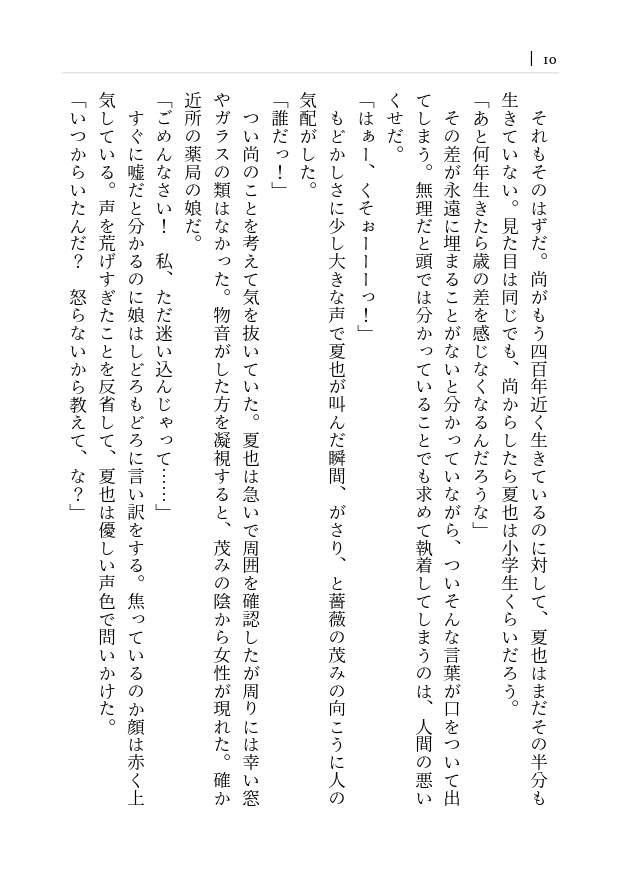 10
　それもそのはずだ。尚がもう四百年近く生きているのに対して、夏也はまだその半分も
生きていない。見た目は同じでも、尚からしたら夏也は小学生くらいだろう。
「あと何年生きたら歳の差を感じなくなるんだろうな」
　その差が永遠に埋まることがないと分かっていながら、ついそんな言葉が口をついて出
てしまう。無理だと頭では分かっていることでも求めて執着してしまうのは、人間の悪い
くせだ。
「はぁー、くそぉーーーっ！」
　もどかしさに少し大きな声で夏也が叫んだ瞬間、がさり、と薔薇の茂みの向こうに人の
気配がした。
「誰だっ！」
　つい尚のことを考えて気を抜いていた。夏也は急いで周囲を確認したが周りには幸い窓
やガラスの類はなかった。物音がした方を凝視すると、茂みの陰から女性が現れた。確か
近所の薬局の娘だ。
「ごめんなさい！　私、ただ迷い込んじゃって……」
　すぐに嘘だと分かるのに娘はしどろもどろに言い訳をする。焦っているのか顔は赤く上
気している。声を荒げすぎたことを反省して、夏也は優しい声色で問いかけた。
「いつからいたんだ？　怒らないから教えて、な？」